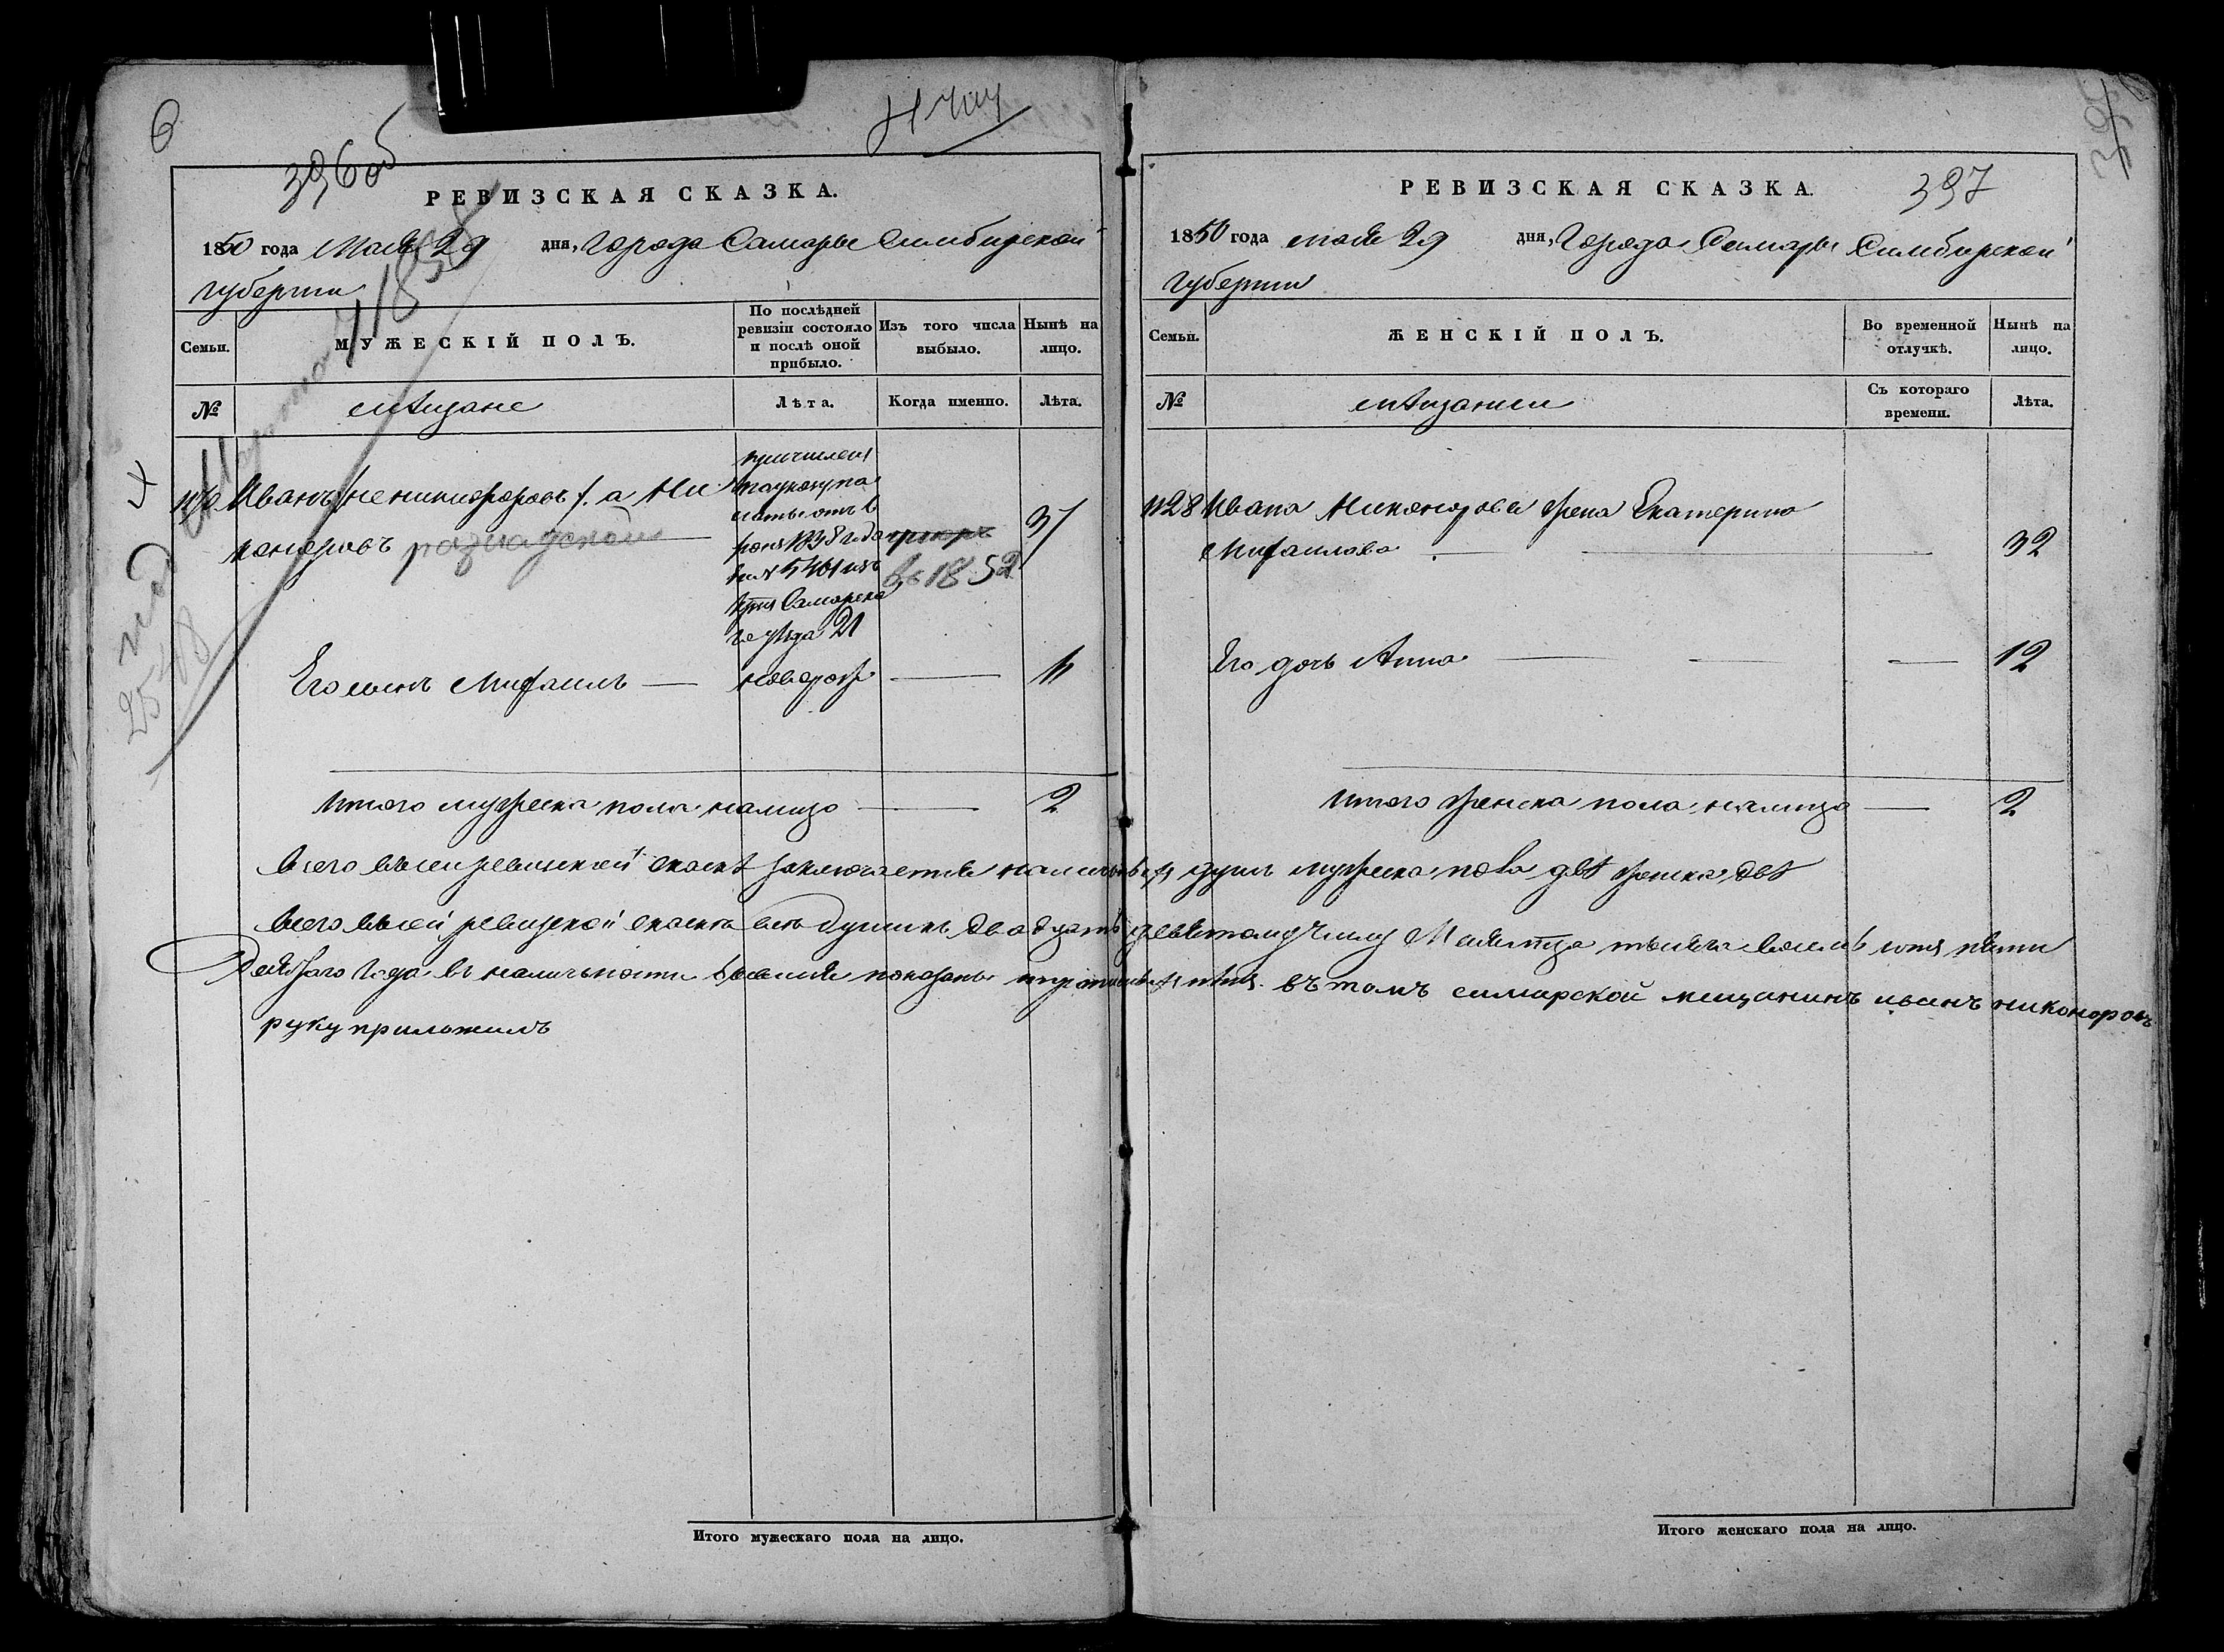 6
396 об
РЕВИЗСКАЯ СКАЗКА.
1850 года Мая 29 дня, Города Самары Симбирской
губернии
Семьи.
МУЖЕСКІЙ ПОЛЪ.
По послѣдней
ревизіи состояло
и послѣ оной
прибыло.
Изъ того числа
выбыло.
Нынѣ на
лицо.
№
мѣщане
Лѣта.
Когда именно.
Лѣта.
Иванъ (не никифоровъ). а Ни
коноровъ
причислен
по указу па
латы отъ 6
1838 года
за № 5461 изъ
Самарска
го уѣзда 21
въ 1852
37
Его сынъ Михаилъ
новорож
11
Итого мужеска пола налицо
2
397
РЕВИЗСКАЯ СКАЗКА.
1850 года мая 29 дня, Города Самары Симбирской
губернии
Семьи.
ЖЕНСКІЙ ПОЛЪ.
Во временной
отлучкѣ.
Нынѣ на
лицо.
№
мѣщанки
Съ котораго
времени.
Лѣта.
1128 Ивана Никонорова жена Екатерина
Михаилова
32
Его дочь Анна
12
Итого женска пола налицо
2
Всего въ сей ревизской сказкѣ заключается наличныхъ душъ мужеска пола двѣ женска двѣ
Всего въсей ревизской сказкѣ душамъ двадцать девятому числу Маия мца тысяча восемь сотъ пяти
десятаго года въ наличности показаны нѣтъ. въ томъ самарской мещанинъ иванъ никоноровъ
руку приложилъ
Итого мужескаго пола на лицо.
Итого женскаго пола на лицо.